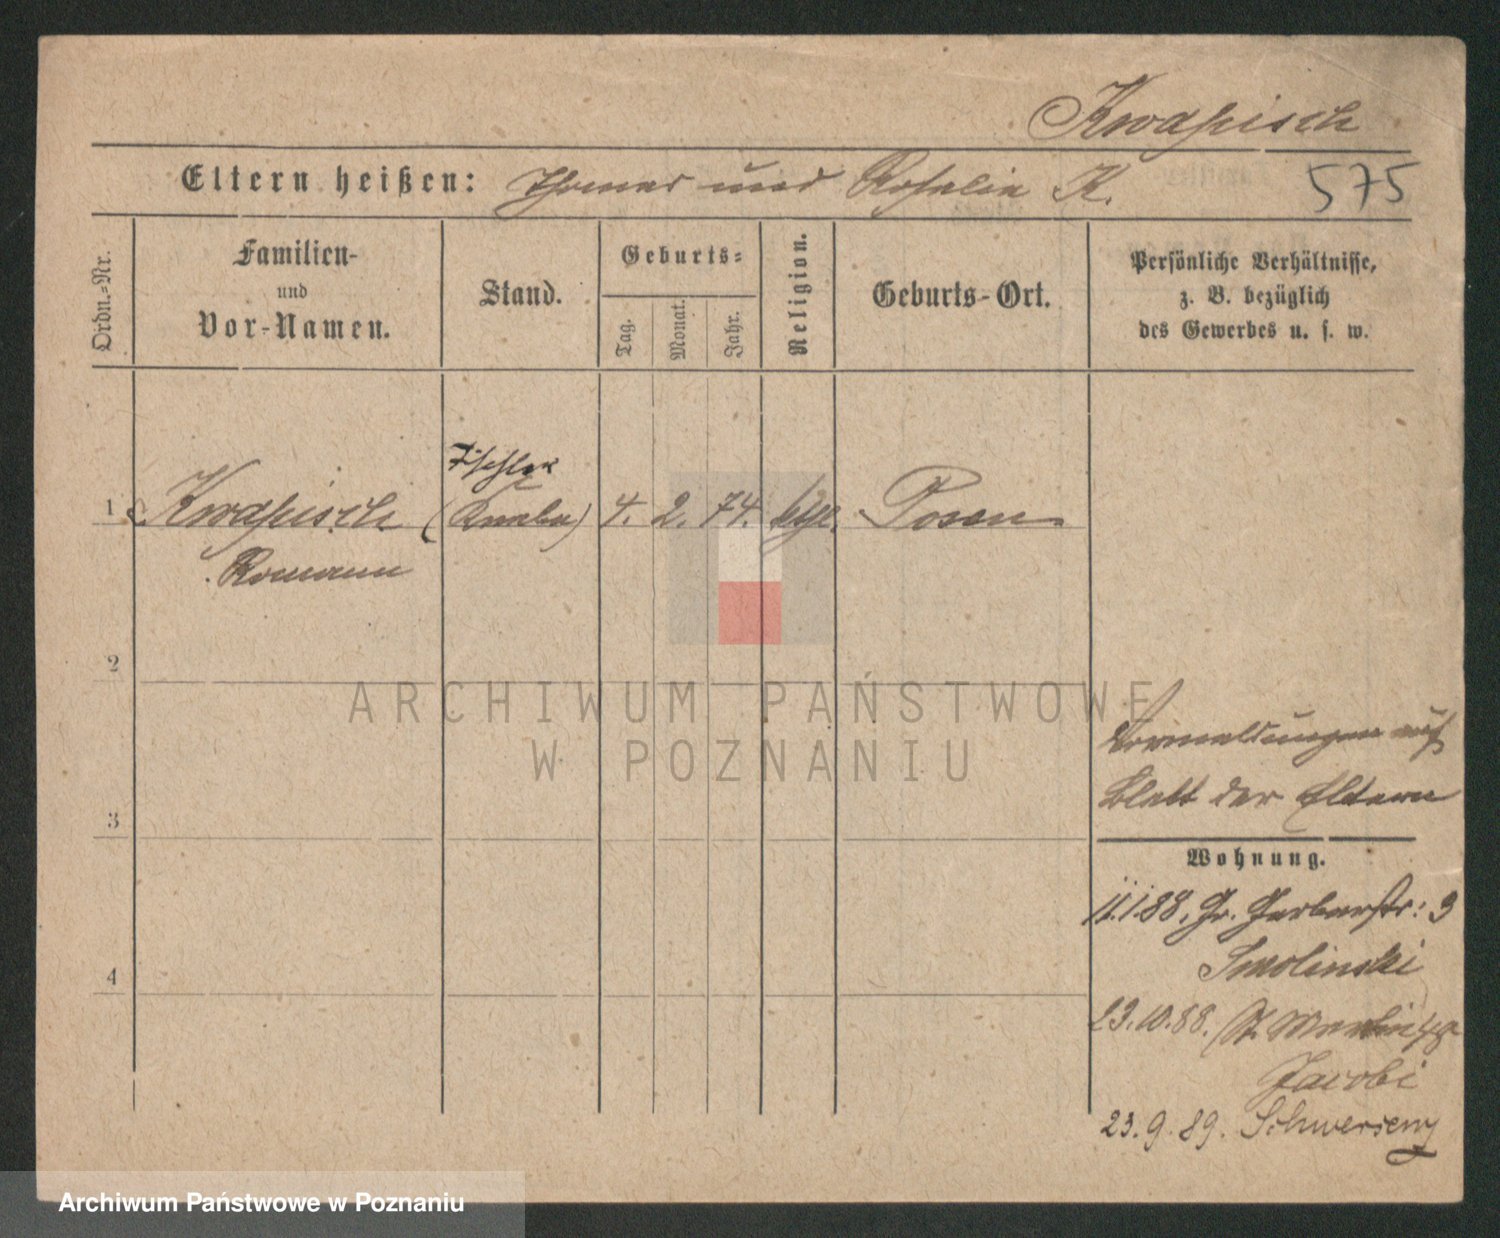 Kwapisch
Eltern heißen: Thomas und Rosalie K.
575
Ordn.-Nr.
Familien-
und
Vor-Namen.
Stand.
Geburts-
Tag.
Monat.
Jahr.
Religion.
Geburts-Ort.
Persönliche Verhältnisse,
z. B. bezüglich
des Gewerbes u. s. w.
Tischler
1 Kwapisch (Knabe) 4. 2. 74. Posen
Romann
2
ARCHIWUM PAŃSTWOWE
W POZNANIU
Vormeldungen auf
Blatt der Eltern
3
Wohnung.
11.1.88. Gr. Gerberstr: 9
Smolinski
4
23.10.88. St. Martin
Jacobi
23.9.89. Schwersenz
Archiwum Państwowe w Poznaniu